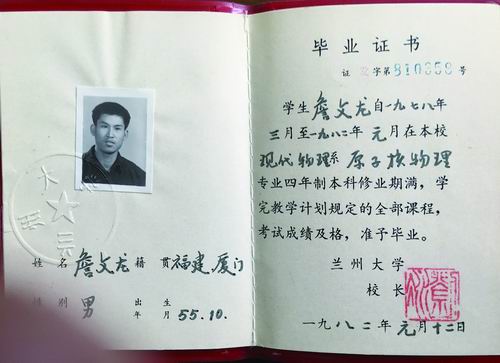 姓名 詹文龙 籍贯 福建厦门
性别 男 出生年月 55.10.
毕业证书
证 字第810358号
学生詹文龙自一九七八年
三月至一九八二年元月在本校
现代物理系原子核物理
专业四年制本科修业期满，学
完教学计划规定的全部课程，
考试成绩及格，准予毕业。
兰州大学
校长
一九八二年元月十二日